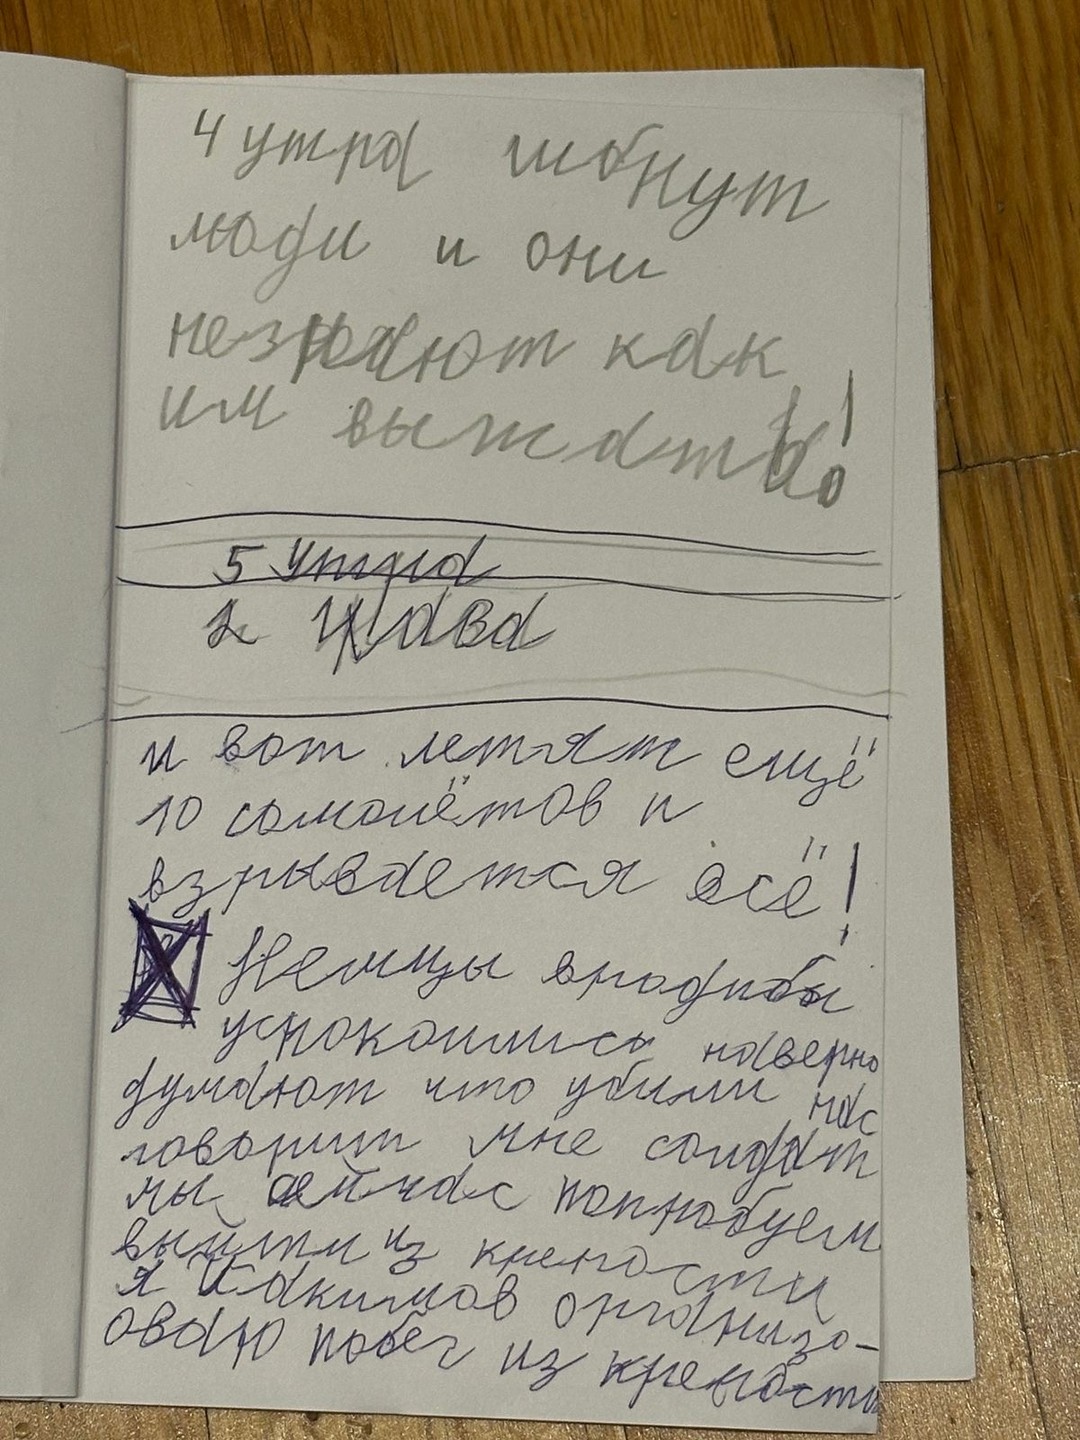 4 утра гибнут
люди и они
незнают как
им выжать!
5 утра
2 глава
и вот летят ещё
10 самолётов и
взрывается всё!
Немцы вродибы
успокоились наверно
думают что убили нас
говорит мне солдат
мы сейчас попробуем
выйти из крепости
я Какимов органиизо-
оваю побег из крепости